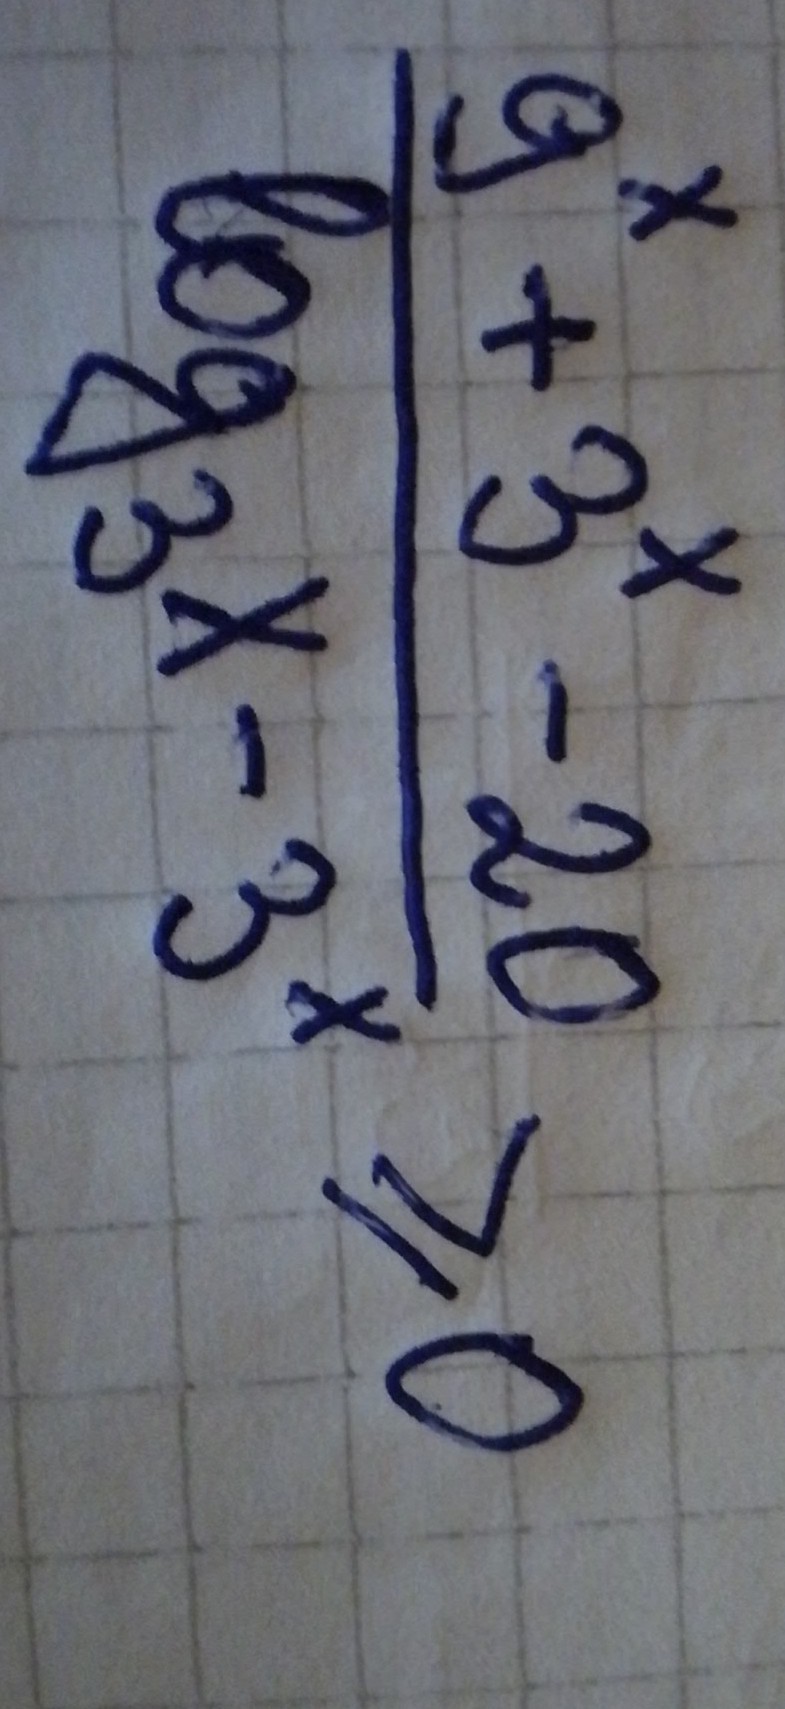 9ˣ + 3ˣ - 20
log₃x - 3ˣ
≥ 0